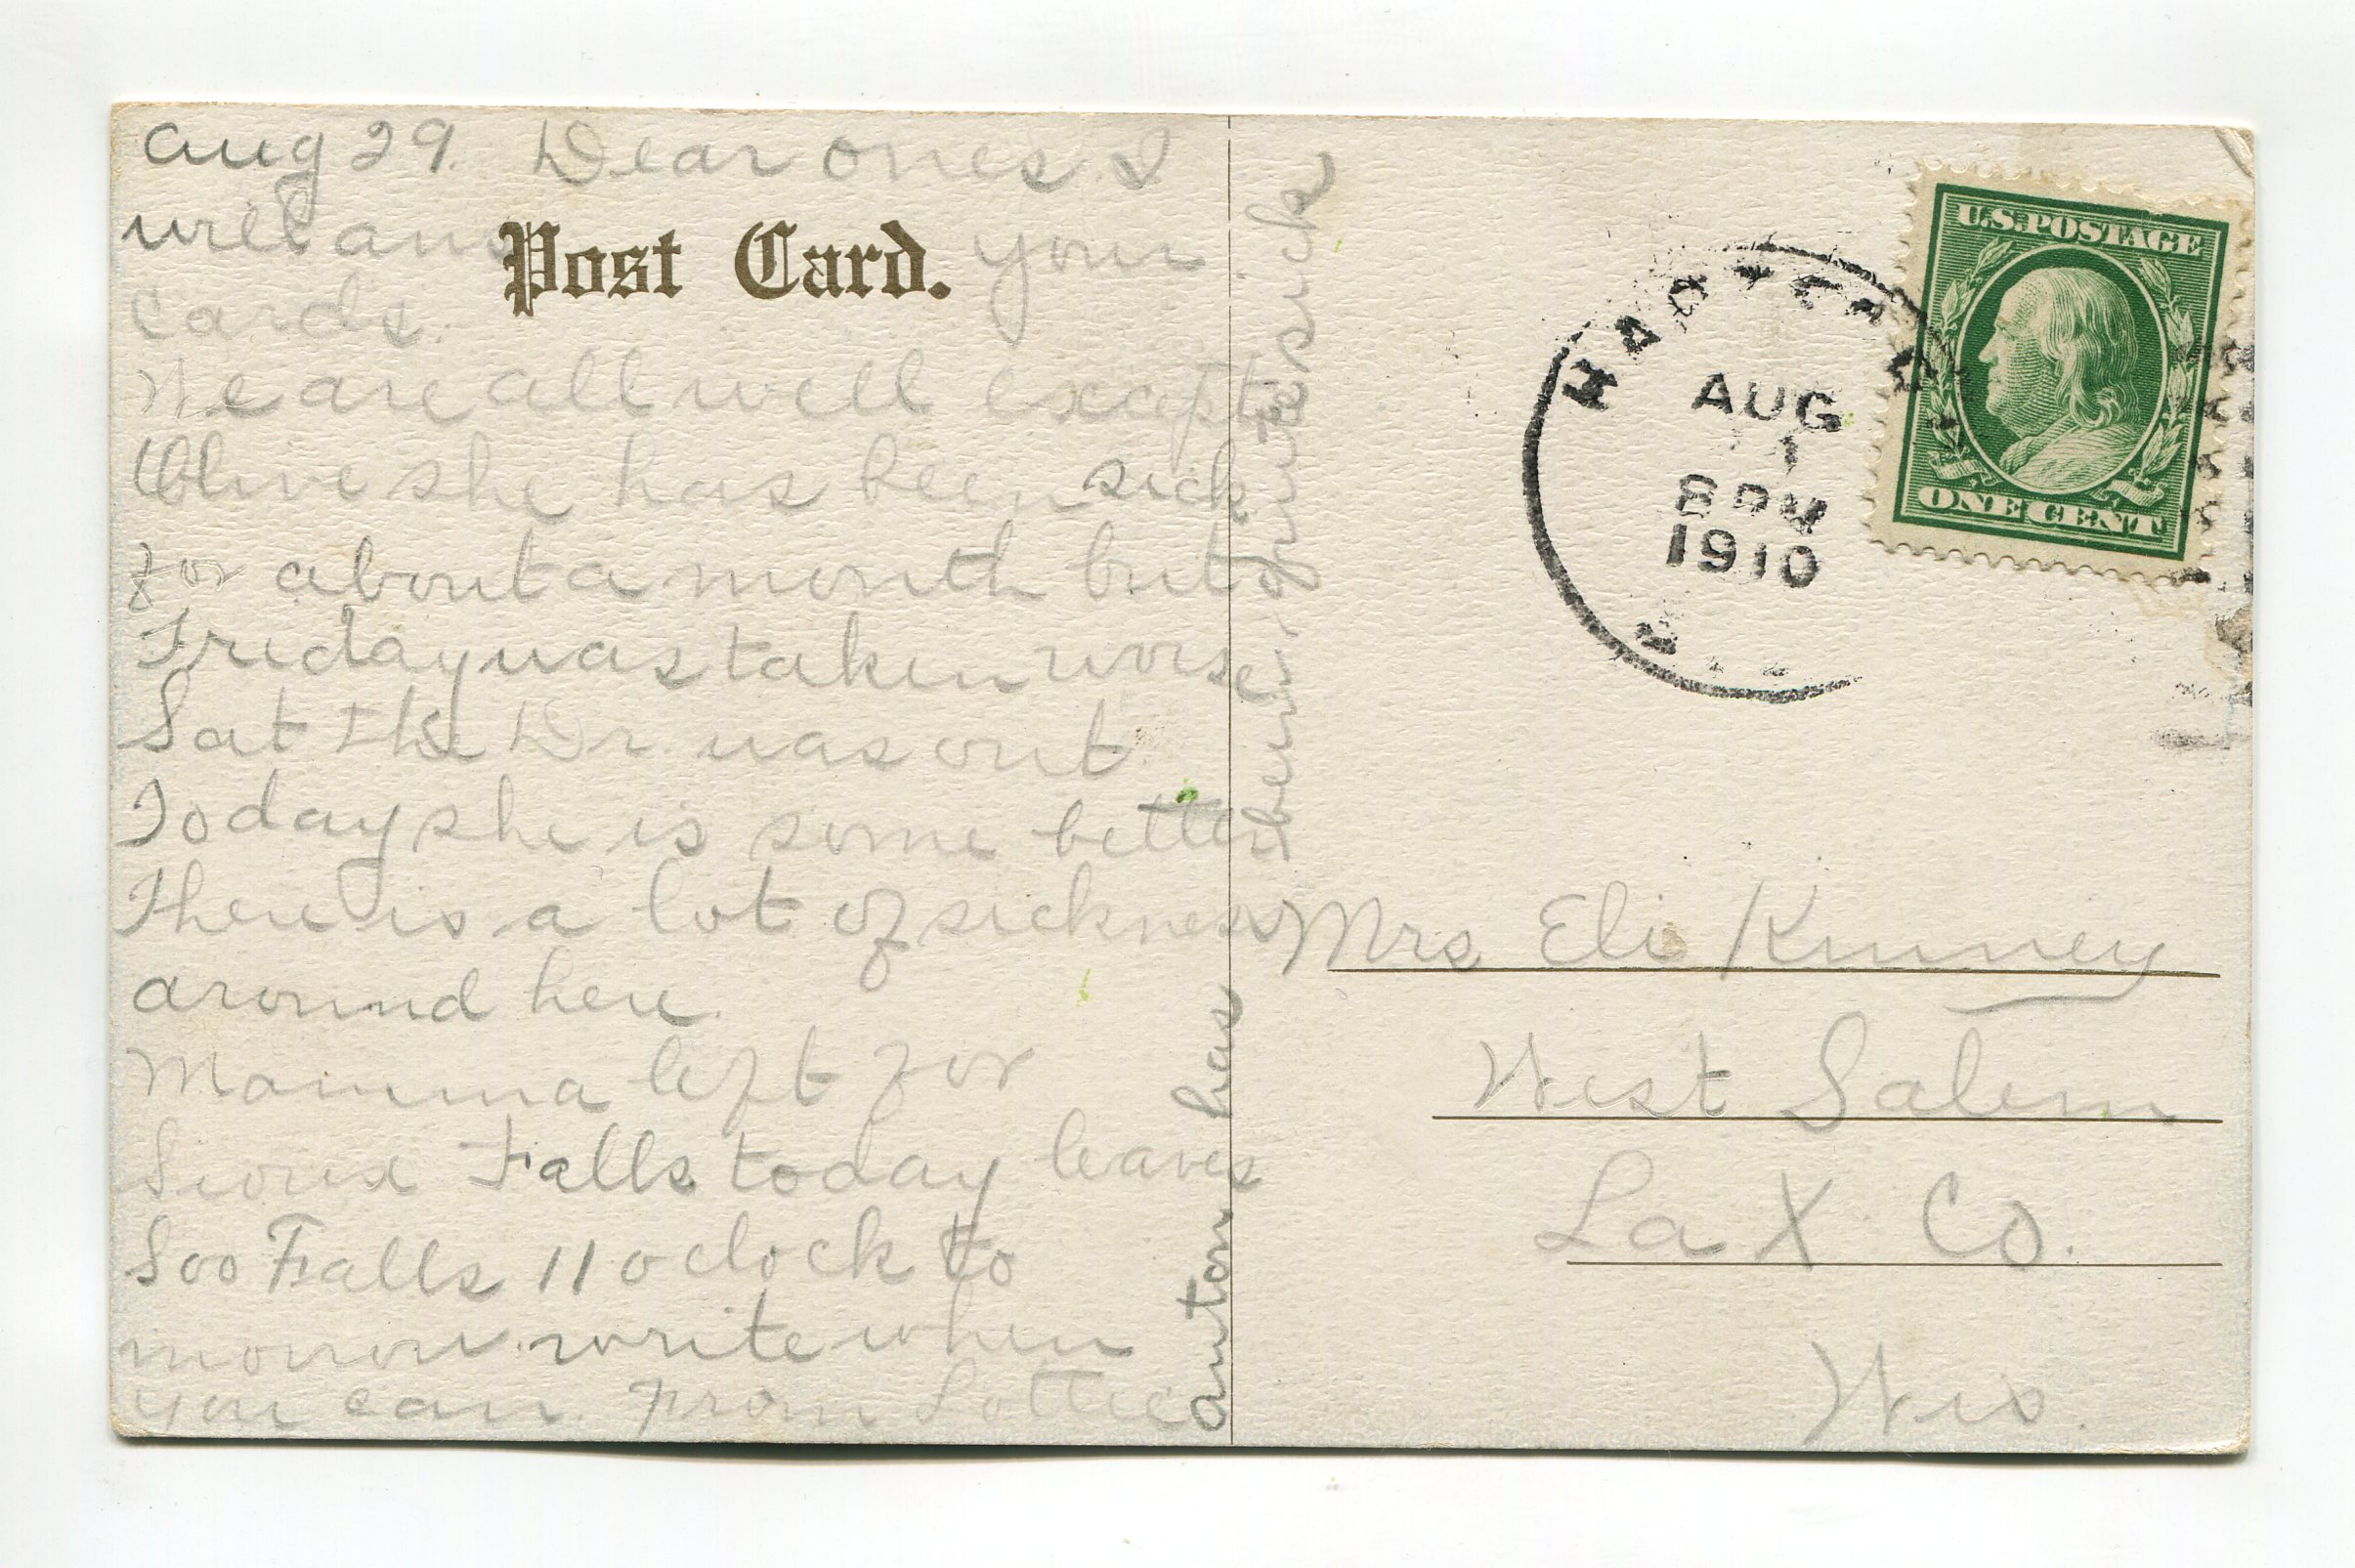 Aug 29. Dear ones I
will ans your
Post Card.
cards.
We are all well except
Olive she has been sick
for about a month but
Friday was taken worse
Sat the Dr. was out
Today she is some better
There is a lot of sickness
around here.
Mamma left for
Sioux Falls today leaves
Soo Falls 11 oclock to
morrow. write when
you can. From Lottie
anton has
been quite sick
U.S. POSTAGE
ONE CENT
AUG
8 PM
1910
Mrs Eli Kinney
West Salem
La X Co.
Wis.